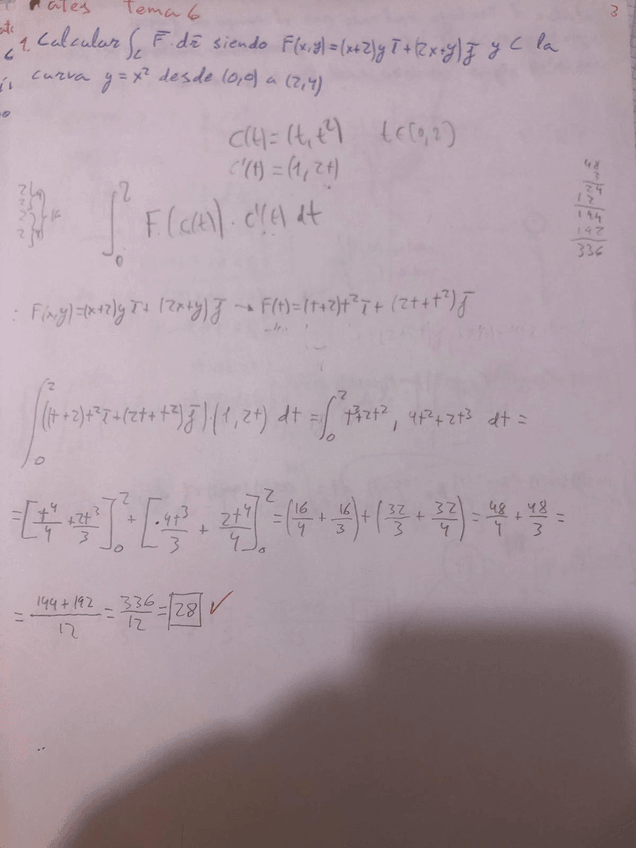 Mates Tema 6
3
1. Calcular ∫_C F̄·dr̄ siendo F̄(x,y)=(x+2)y ī+(2x+y) j̄ y C la
curva y=x² desde (0,0) a (2,4)
C(t)=(t,t²) t∈[0,2]
C'(t)=(1,2t)
∫₀² F(c(t))·c'(t) dt
48
3
24
12
144
192
336
F(x,y)=(x+2)y ī+(2x+y) j̄ → F(t)=(t+2)t² ī+(2t+t²) j̄
∫₀² ((t+2)t² ī+(2t+t²) j̄)(1,2t) dt = ∫₀² t³+2t², 4t²+2t³ dt =
=[t⁴/4 + 2t³/3]₀² + [4t³/3 + 2t⁴/4]₀² = (16/4 + 16/3)+(32/3 + 32/4) = 48/4 + 48/3 =
= (144+192)/12 = 336/12 = 28 ✓